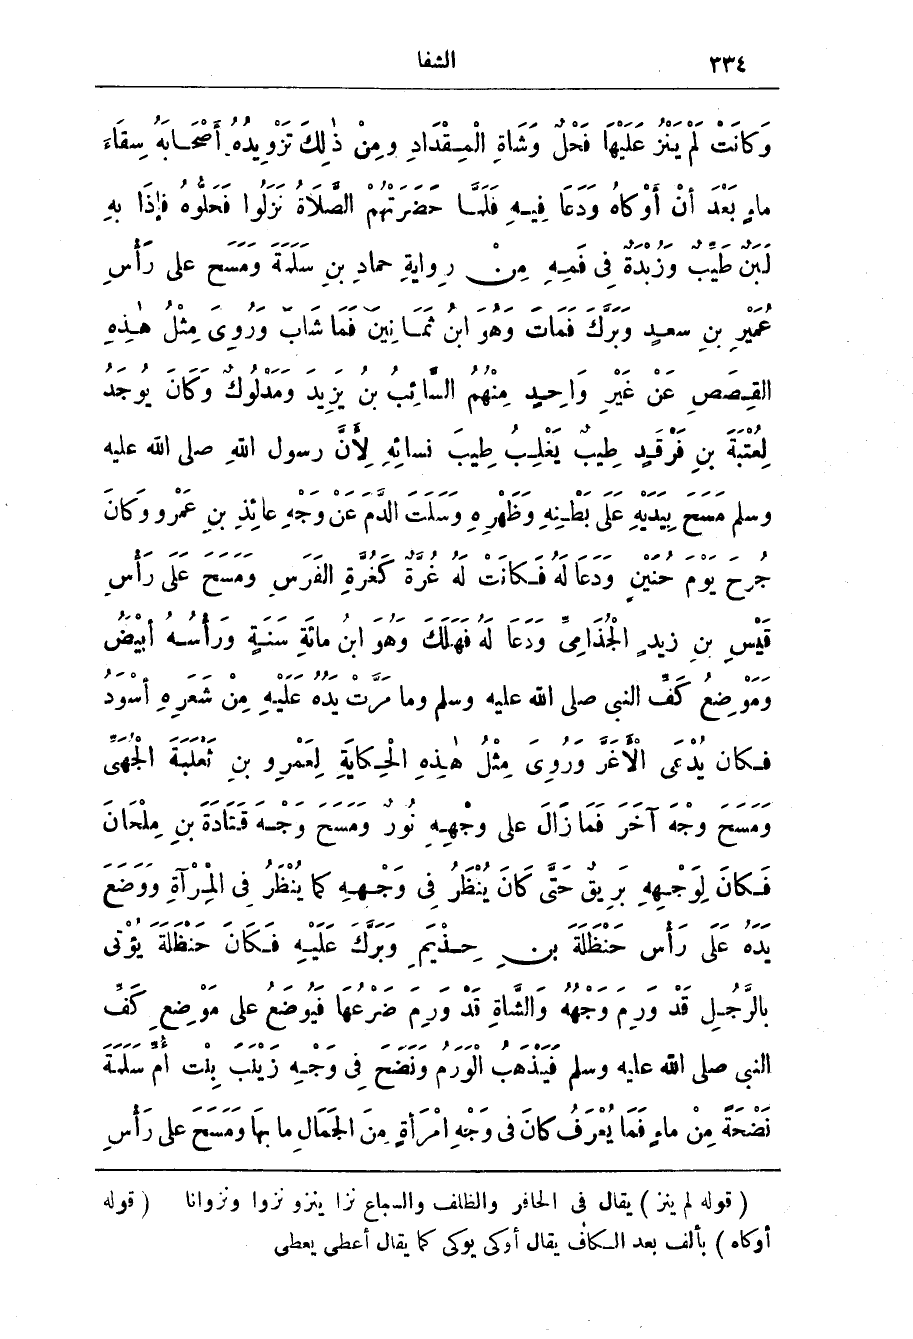 ٣٣٤ الشفا
وَكَانَتْ لَمْ يَنْزُ عَلَيْهَا فَحْلٌ وَشَاةِ الْمِقْدَادِ وَمِنْ ذٰلِكَ تَزْوِيدُهُ أَصْحَابَهُ سِقَاءَ
مَاءٍ بَعْدَ أَنْ أَوْكَاهُ وَدَعَا فِيهِ فَلَمَّا حَضَرَتْهُمُ الصَّلَاةُ نَزَلُوا فَحَلُّوهُ فَإِذَا بِهِ
لَبَنٌ طَيِّبٌ وَزُبْدَةٌ فِى فَمِهِ مِنْ رِوايةِ حمادِ بنِ سَلَمَةَ وَمَسَحَ على رَأْسِ
عُمَيْرِ بنِ سعيدٍ وَبَرَّكَ فَمَاتَ وَهُوَ ابنُ ثَمَانِينَ فَمَا شَابَ وَرُوِىَ مِثْلُ هٰذِهِ
القِصَصِ عَنْ غَيْرِ وَاحِدٍ مِنْهُمُ السَّائِبُ بنُ يَزِيدَ وَمَدْلُوكٌ وَكَانَ يُوجَدُ
لِعُتْبَةَ بنِ فَرْقَدٍ طِيبٌ يَغْلِبُ طِيبَ نسائِهِ لِأَنَّ رسول اللهِ صلى الله عليه
وسلم مَسَحَ بِيَدَيْهِ عَلَى بَطْنِهِ وَظَهْرِهِ وَسَلَتَ الدَّمَ عَنْ وَجْهِ عائِذِ بنِ عَمْرٍو وَكَانَ
جُرِحَ يَوْمَ حُنَيْنٍ وَدَعَا لَهُ فَكانَتْ لَهُ غُرَّةٌ كَغُرَّةِ الفَرَسِ وَمَسَحَ عَلَى رَأْسِ
قَيْسِ بنِ زيدٍ الْجُذَامِىِّ وَدَعَا لَهُ فَهَلَكَ وَهُوَ ابنُ مائَةِ سَنَةٍ وَرَأْسُهُ أَبْيَضُ
وَمَوْضِعُ كَفِّ النبى صلى الله عليه وسلم وما مَرَّتْ يَدُهُ عَلَيْهِ مِنْ شَعَرِهِ أَسْوَدُ
فَكان يُدْعَى الْأَغَرَّ وَرُوِىَ مِثْلُ هٰذِهِ الْحِكايَةِ لِعَمْرِو بنِ ثَعْلَبَةَ الْجُهَنِىِّ
وَمَسَحَ وَجْهَ آخَرَ فَمَا زَالَ على وَجْهِهِ نُورٌ وَمَسَحَ وَجْهَ قَتَادَةَ بنِ مِلْحَانَ
فَكَانَ لِوَجْهِهِ بَرِيقٌ حَتَّى كَانَ يُنْظَرُ فى وَجْهِهِ كما يُنْظَرُ فى الْمِرْآةِ وَوَضَعَ
يَدَهُ عَلَى رَأْسِ حَنْظَلَةَ بنِ حِذْيَمٍ وَبَرَّكَ عَلَيْهِ فَكَانَ حَنْظَلَةُ يُؤْتَى
بالرَّجُلِ قَدْ وَرِمَ وَجْهُهُ وَالشَّاةِ قَدْ وَرِمَ ضَرْعُهَا فَيُوضَعُ على مَوْضِعِ كَفِّ
النبى صلى الله عليه وسلم فَيَذْهَبُ الوَرَمُ وَنَضَحَ فى وَجْهِ زَيْنَبَ بِنْتِ أُمِّ سَلَمَةَ
نَضْحَةً مِنْ ماءٍ فَمَا يُعْرَفُ كانَ فى وَجْهِ امْرَأَةٍ مِنَ الْجَمَالِ ما بِهَا وَمَسَحَ على رَأْسِ
( قوله لم ينز ) يقال فى الحافر والظلف والسباع نزا ينزو نزوا ونزوانا ( قوله
أوكاه ) بألف بعد الكاف يقال أوكى يوكى كما يقال أعطى يعطى